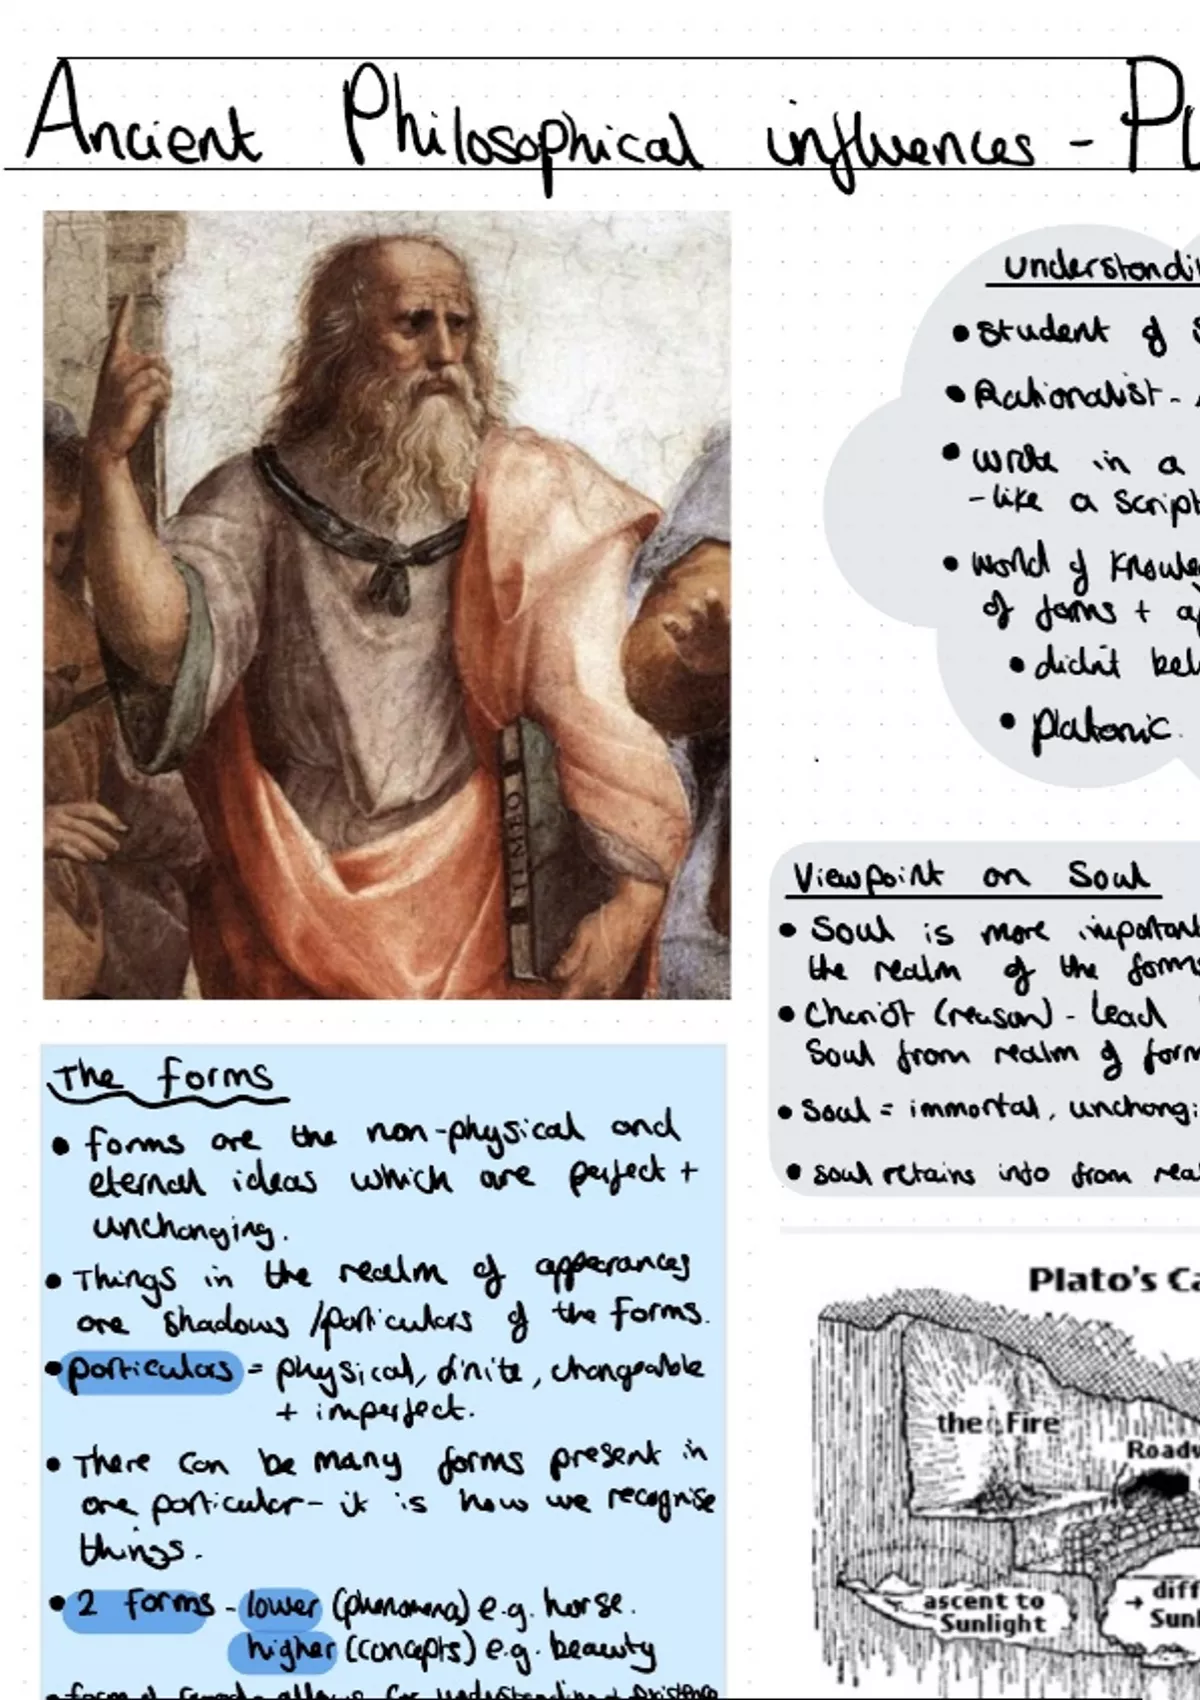 Ancient Philosophical influences - Pl
TIMEO
understandi
• student of S
• Rationalist -
• write in a
- like a script
• world of knowle
of forms + ap
• didn't bel
• platonic
Viewpoint on Soul
• Soul is more important
the realm of the forms
• Chariot (reason) - lead
Soul from realm of form
• Soul = immortal, unchangi
• soul retains info from rea
The forms
• forms are the non-physical and
eternal ideas which are perfect +
unchanging.
• Things in the realm of appearances
are shadows / particulars of the forms.
• particulars = physical, finite, changeable
+ imperfect.
• There can be many forms present in
one particular - it is how we recognise
things.
• 2 forms - lower (phenomena) e.g. horse.
higher (concepts) e.g. beauty
Plato's Ca
the Fire
Roadw
ascent to
Sunlight
→ diff
Sunl